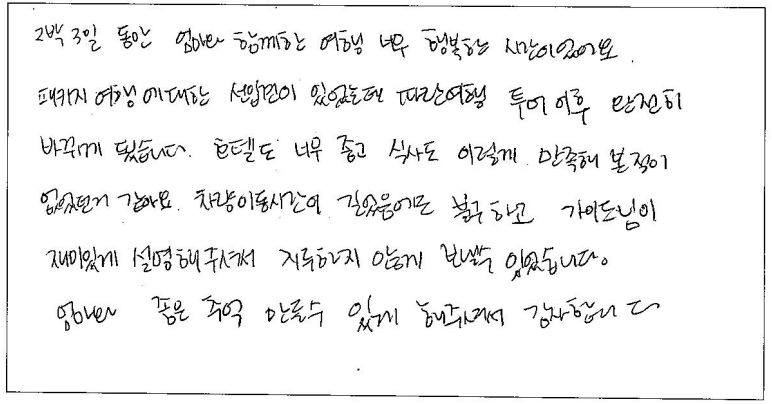 2박 3일 동안 엄마와 함께한 여행 너무 행복한 시간이었어요.
패키지 여행에 대한 선입견이 있었는데 따란여행 투어 이후 완전히
바뀌게 됐습니다. 호텔도 너무 좋고 식사도 이렇게 만족해 본적이
없었던거 같아요. 차량이동시간이 길었음에도 불구하고 가이드님이
재미있게 설명해주셔서 지루하지 않게 보낼수 있었습니다.
엄마와 좋은 추억 만들수 있게 해주셔서 감사합니다